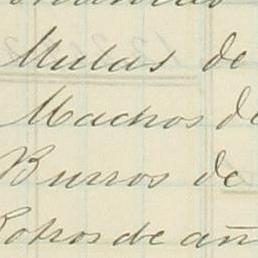 Mulas de
Machos de
Burros de
Potros de añ